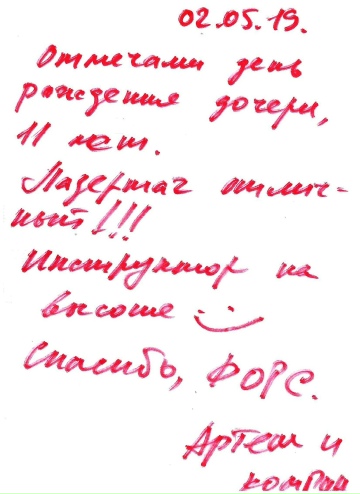 02.05.19.
Отмечали день
рождения дочери,
11 лет.
Лазертаг отлич-
ный!!!
Инструктор на
высоте :)
Спасибо, ФОРС.
Артем и
компани